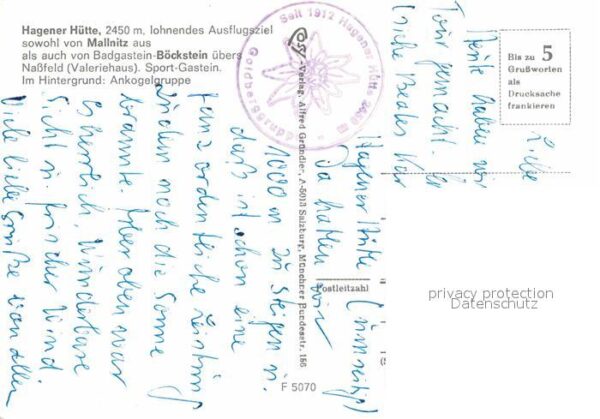 Hagener Hütte, 2450 m, lohnendes Ausflugsziel
sowohl von Mallnitz aus
als auch von Badgastein-Böckstein übers
Naßfeld (Valeriehaus). Sport-Gastein.
Im Hintergrund: Ankogelgruppe
Seit 1912 Hagener Hütte 2450 m
Goldberg
Cosy-Verlag, Alfred Gründler, A-5013 Salzburg, Münchner Bundesstr. 156
Bis zu 5
Grußworten
als
Drucksache
frankieren
Postleitzahl
F 5070
privacy protection
Datenschutz
Liebe
Heute haben wir
Tour gemacht.
Hagener Hütte (umseitig)
Da hatten wir
1000 m zu steigen u.
daß ist schon eine
ganz ordentliche Leistung
zudem noch die Sonne
brannte. Aber oben war
es herrlich. Wunderbare
Sicht u. frischer Wind
Viele liebe Grüße von allen